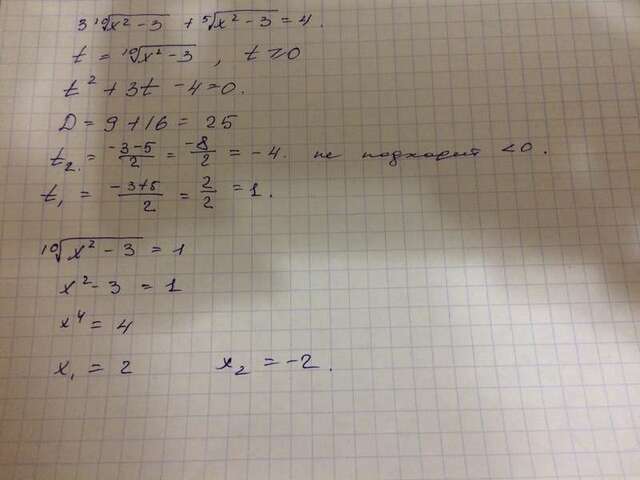 3 ¹⁰√(x² − 3) + ⁵√(x² − 3) = 4.
t = ¹⁰√(x² − 3) , t ≥ 0
t² + 3t − 4 = 0.
D = 9 + 16 = 25
t₂. = (−3−5)/2 = −8/2 = −4. не подходит < 0.
t₁ = (−3+5)/2 = 2/2 = 1.
¹⁰√(x² − 3) = 1
x² − 3 = 1
x⁴ = 4
x₁ = 2 x₂ = −2.